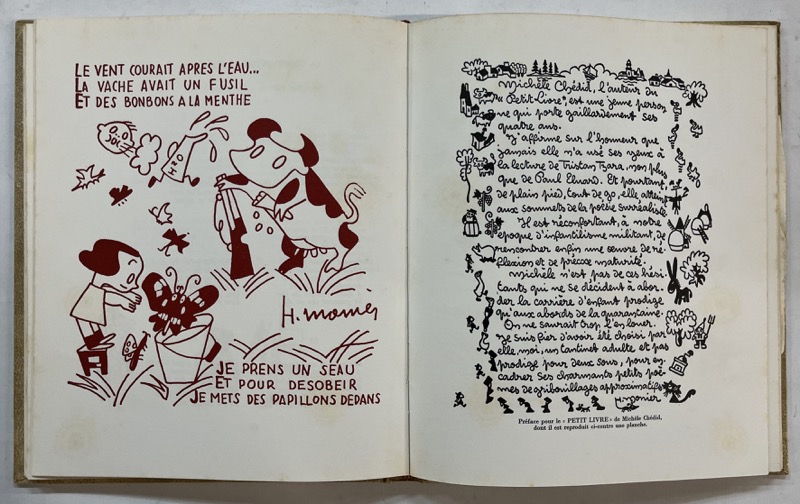 LE VENT COURAIT APRES L'EAU...
LA VACHE AVAIT UN FUSIL
ET DES BONBONS A LA MENTHE
H. monier
JE PRENS UN SEAU
ET POUR DESOBEIR
JE METS DES PAPILLONS DEDANS
Michèle Chédid, l'auteur du
"Petit-Livre", est une jeune person
ne qui porte gaillardement ses
quatre ans.
J'affirme sur l'honneur que
jamais elle n'a usé ses yeux à
la lecture de Tristan Tzara, non plus
que de Paul Eluard. Et pourtant,
de plain pied, tout de go, elle atteint
aux sommets de la poésie surréaliste.
Il est réconfortant, à notre
époque d'infantilisme militant, de
rencontrer enfin une œuvre de ré-
flexion et de précoce maturité.
Michèle n'est pas de ces hési
tants qui ne se décident à abor-
der la carrière d'enfant prodige
qu'aux abords de la quarantaine.
On ne saurait trop l'en louer.
Je suis fier d'avoir été choisi par
elle, moi, un tantinet adulte et pas
prodige pour deux sous, pour en-
cadrer ses charmants petits poè-
mes de gribouillages approximatifs
H. monier
Préface pour le « PETIT LIVRE » de Michèle Chédid,
dont il est reproduit ci-contre une planche.